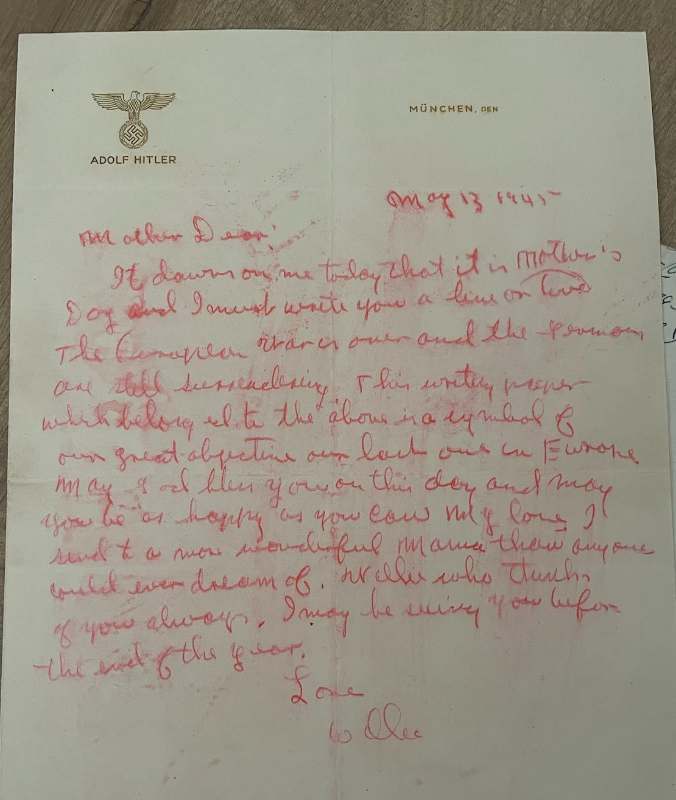 ADOLF HITLER
MÜNCHEN, DEN
May 13 1945
Mother Dear:
It dawns on me today that it is Mother's
Day and I must write you a line or two
The European War is over and the Germans
are still surrendering. This writing paper
which belonged to the above is a symbol of
our great objective our last one in Europe
May God bless you on this day and may
you be as happy as you can My love I
send to a more wonderful Mama than anyone
could ever dream of. Willie who thinks
of you always. I may be seeing you before
the end of the year.
Love
Willie